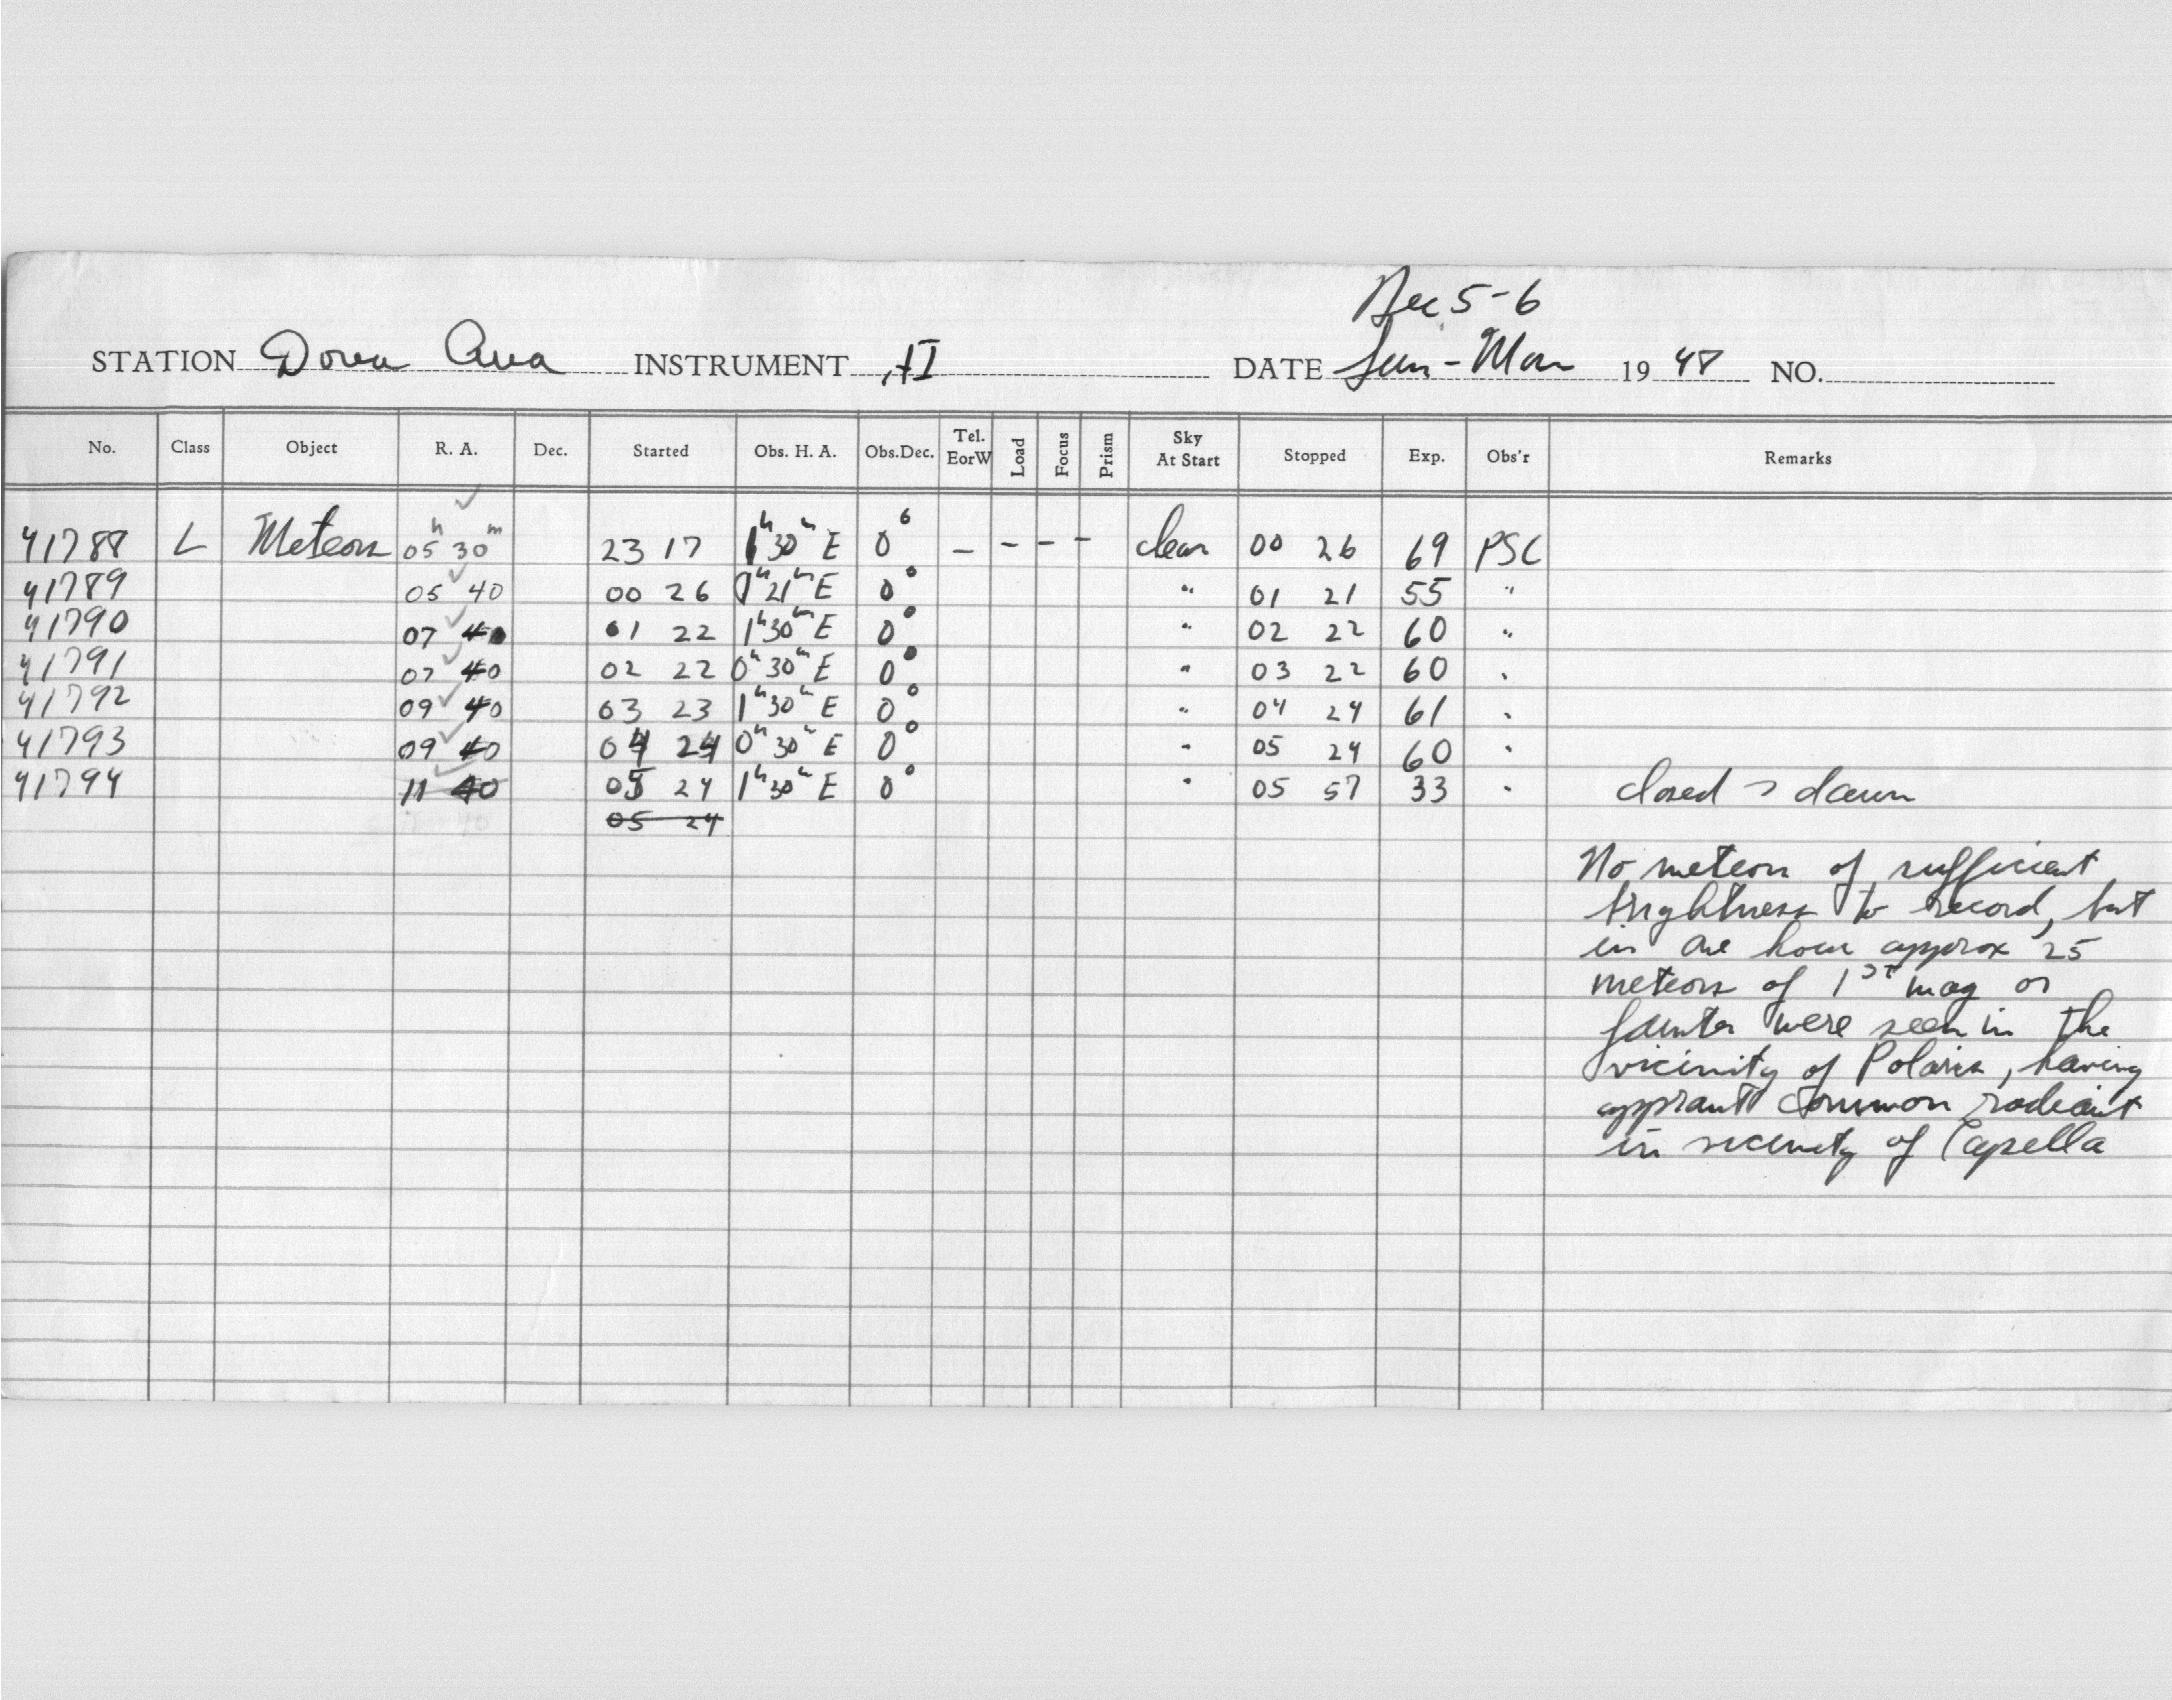 Dec 5-6
STATION Dona Ana INSTRUMENT AI DATE Sun-Mon 1948 NO.
No. Class Object R. A. Dec. Started Obs. H. A. Obs.Dec. Tel. EorW Load Focus Prism Sky At Start Stopped Exp. Obs'r Remarks
41788 L Meteors 05h 30m 23 17 1h 30m E 0° - - - - clear 00 26 69 PSC
41789 05 40 00 26 0h 21m E 0° " 01 21 55 "
41790 07 40 01 22 1h 30m E 0° " 02 22 60 "
41791 07 40 02 22 0h 30m E 0° " 03 22 60 "
41792 09 40 03 23 1h 30m E 0° " 04 24 61 "
41793 09 40 04 24 0h 30m E 0° " 05 24 60 "
41794 11 40 05 24 1h 30m E 0° " 05 57 33 " closed dawn
05 24
No meteors of sufficient
brightness to record, but
in one hour approx 25
meteors of 1st mag or
fainter were seen in the
vicinity of Polaris, having
apprant common radiant
in vicinity of Capella